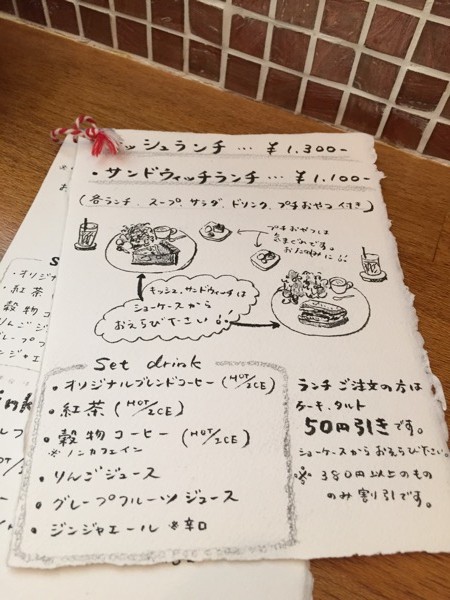 ッシュランチ … ¥1.300-
・サンドウィッチランチ … ¥1.100-
(各ランチ、スープ、サラダ、ドリンク、プチおやつ付き)
プチおやつは
気まぐれです。
お楽しみに!!
キッシュ、サンドウィッチは
ショーケースから
おえらびください!!
Set drink
・オリジナルブレンドコーヒー(HOT/ICE)
・紅茶(HOT/ICE)
・穀物コーヒー(HOT/ICE)
※ノンカフェイン
・りんごジュース
・グレープフルーツジュース
・ジンジャエール ※辛口
ランチご注文の方は
ケーキ、タルト
50円引きです。
ショーケースからおえらびください。
※380円以上のもの
のみ割り引です。
・オリジ
・紅茶
・穀物
※ノ
・りんご
・グレープフ
・ジンジャエ